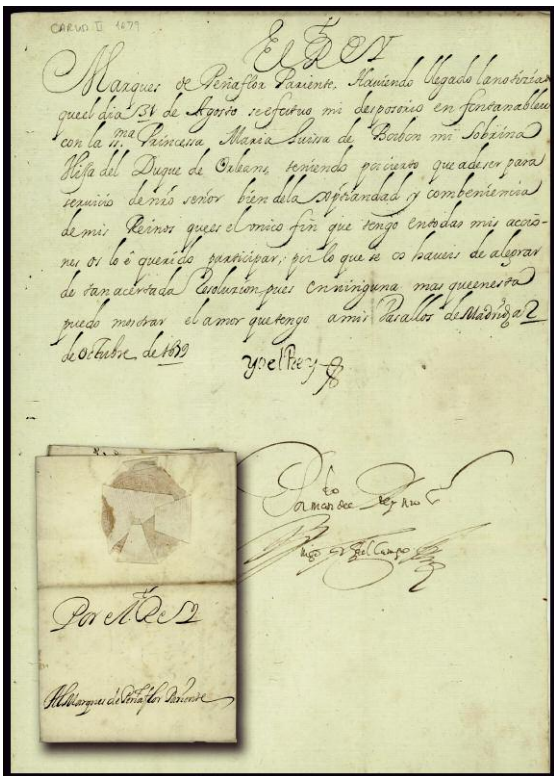 CARLOS II 1679
El Rey
Marques de Peñaflor Pariente. Haviendo llegado la notizia
que el dia 31 de Agosto se efectuo mi desposorio en fontanableu
con la ss.ma Princessa Maria Luissa de Borbon mi Sobrina
Hija del Duque de Orleans, teniendo por cierto que a de ser para
servicio de nrõ señor bien de la xp̃tiandad y combeniencia
de mis Reinos que es el unico fin que tengo en todas mis accio-
nes os lo é querido participar; por lo que se os haveis de alegrar
de tan acertada Resoluzion, pues en ninguna mas que en esta
puedo mostrar el amor que tengo a mis Vasallos de Madrid a 2
de Octubre de 1679
Yo el Rey
Por mandado del Rey nro s.r
Por el Rey
Al Marques de Peñaflor Pariente